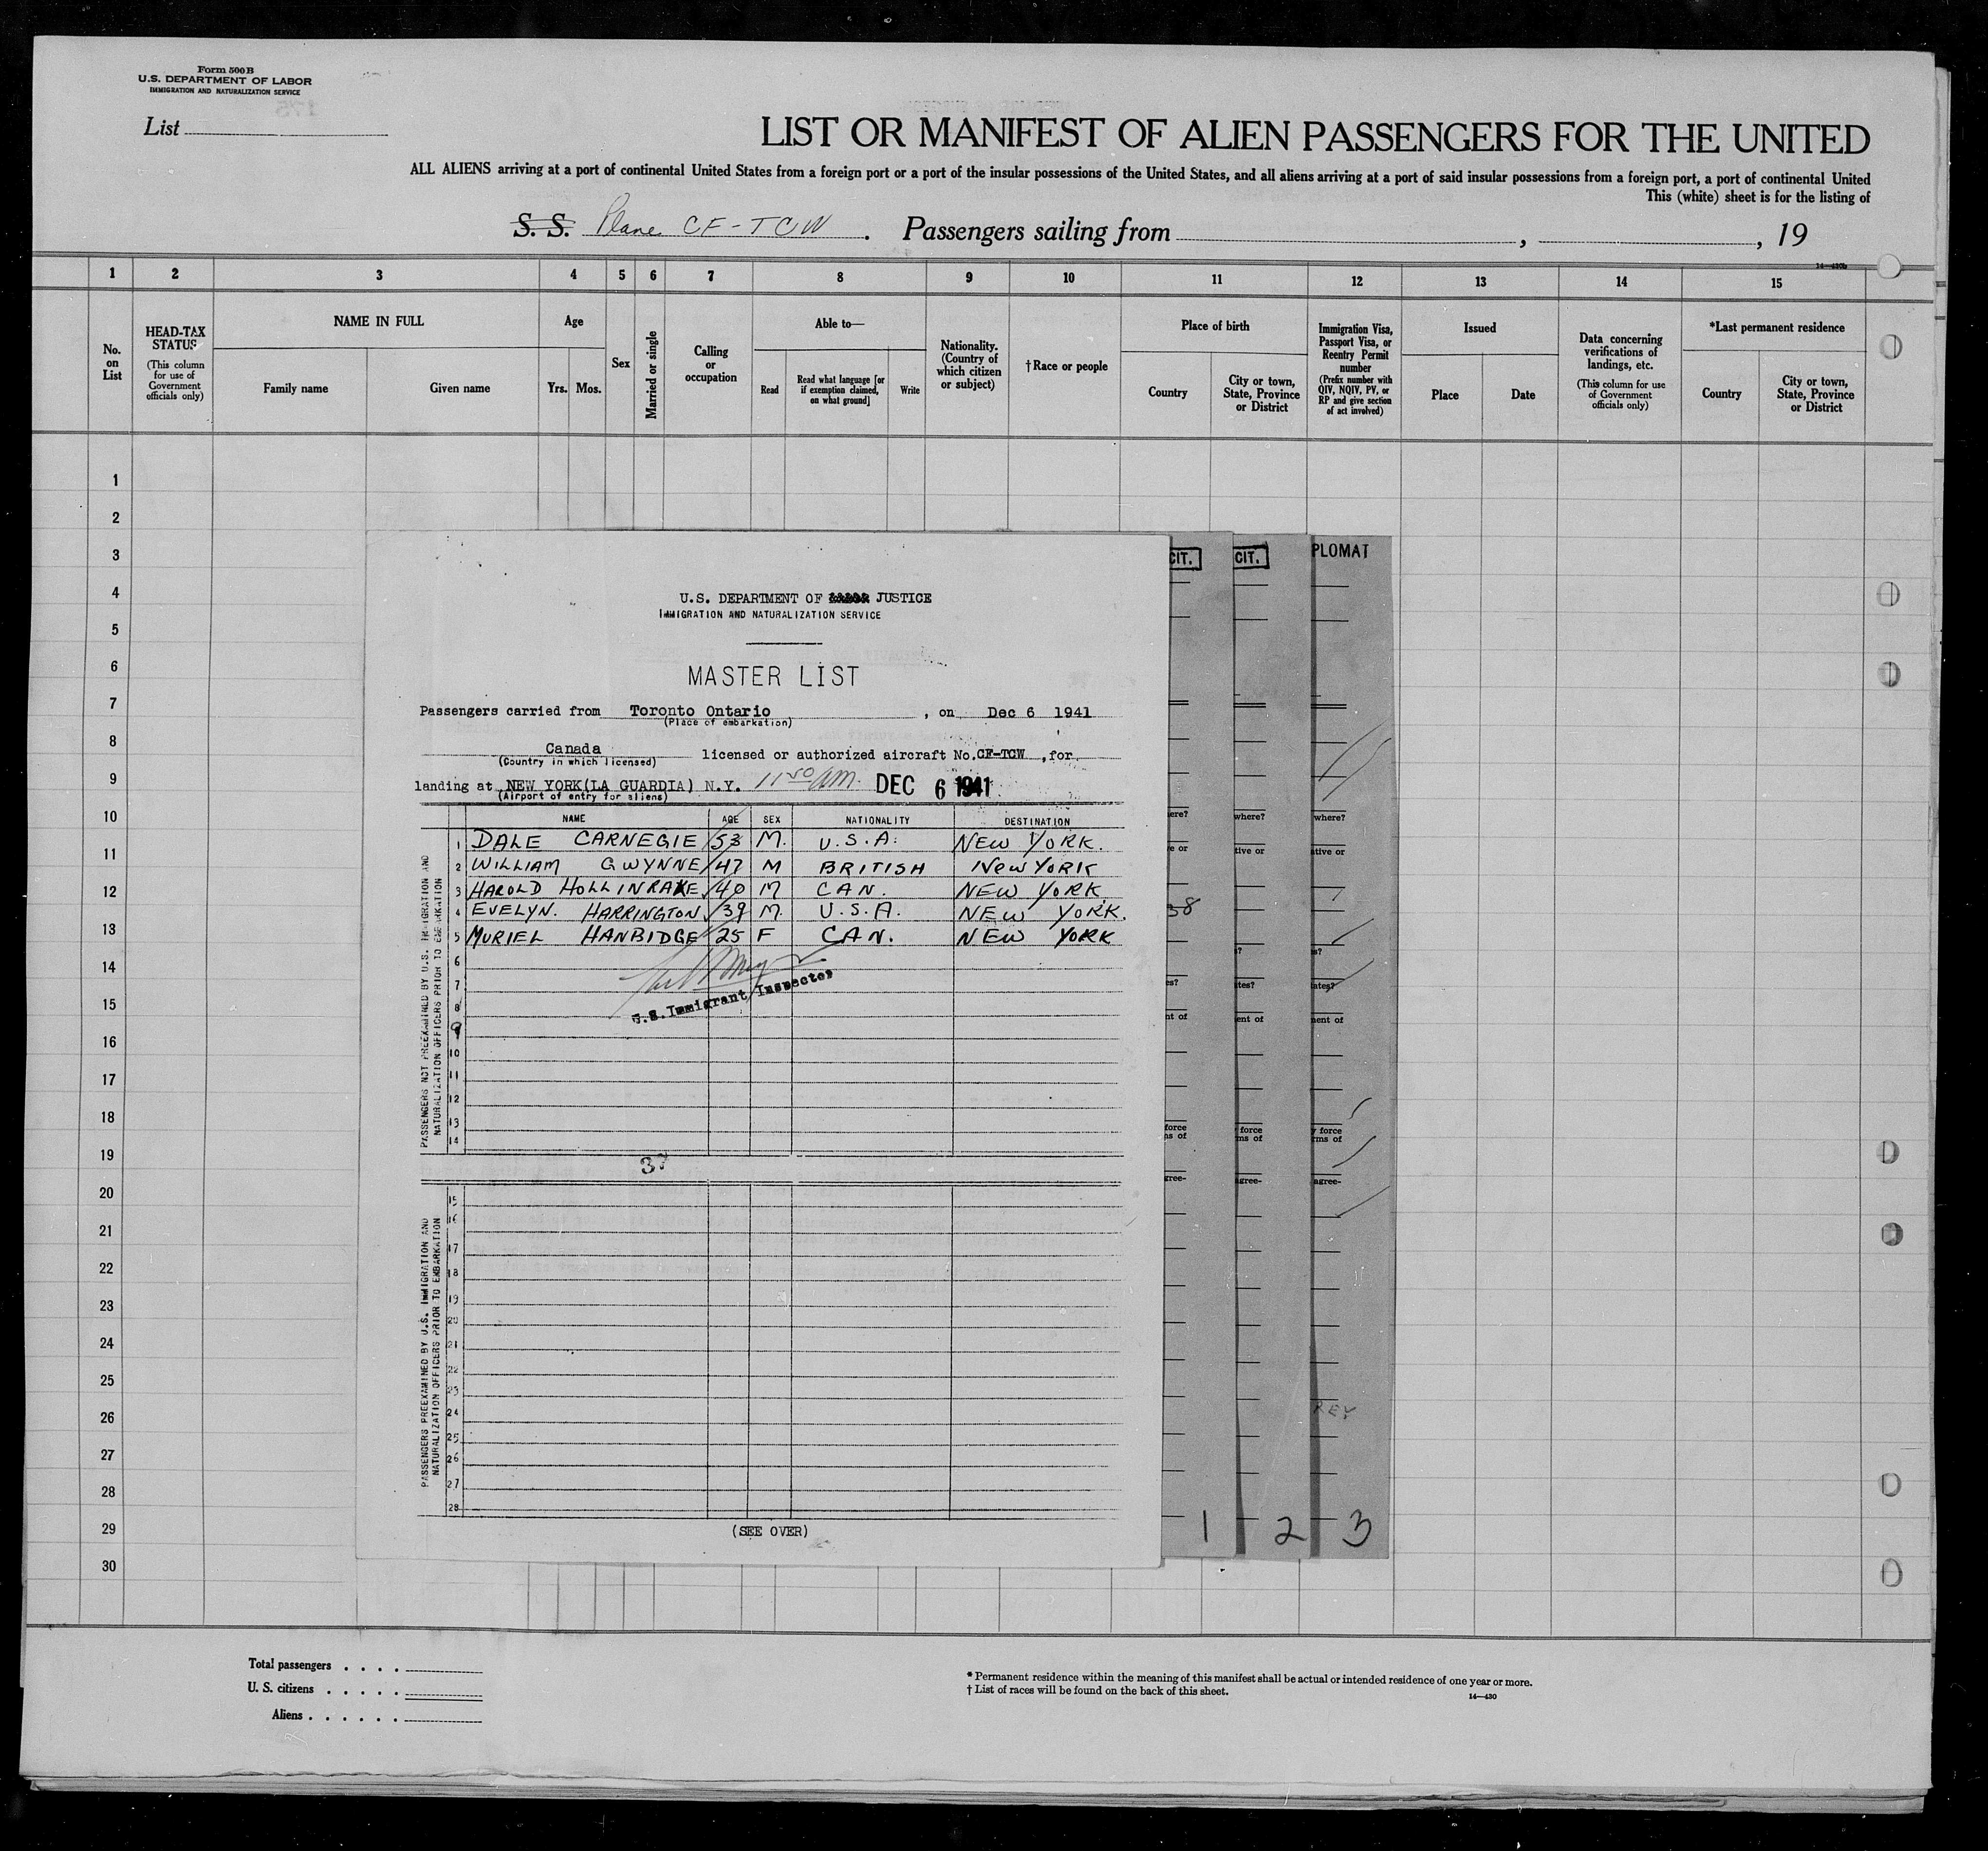 Form 500 B
U.S. DEPARTMENT OF LABOR
IMMIGRATION AND NATURALIZATION SERVICE
List
LIST OR MANIFEST OF ALIEN PASSENGERS FOR THE UNITED
ALL ALIENS arriving at a port of continental United States from a foreign port or a port of the insular possessions of the United States, and all aliens arriving at a port of said insular possessions from a foreign port, a port of continental United
This (white) sheet is for the listing of
S. S. Plane CF-TCW. Passengers sailing from , , 19
14—430b
1 2 3 4 5 6 7 8 9 10 11 12 13 14 15
No. on List
HEAD-TAX STATUS (This column for use of Government officials only)
NAME IN FULL
Family name Given name
Age
Yrs. Mos.
Sex
Married or single
Calling or occupation
Able to—
Read Read what language [or if exemption claimed, on what ground] Write
Nationality. (Country of which citizen or subject)
† Race or people
Place of birth
Country City or town, State, Province or District
Immigration Visa, Passport Visa, or Reentry Permit number (Prefix number with QIV, NQIV, PV, or RP and give section of act involved)
Issued
Place Date
Data concerning verifications of landings, etc. (This column for use of Government officials only)
*Last permanent residence
Country City or town, State, Province or District
1
2
3
4
5
6
7
8
9
10
11
12
13
14
15
16
17
18
19
20
21
22
23
24
25
26
27
28
29
30
U.S. DEPARTMENT OF JUSTICE
IMMIGRATION AND NATURALIZATION SERVICE
MASTER LIST
Passengers carried from Toronto Ontario , on Dec 6 1941
(Place of embarkation)
Canada licensed or authorized aircraft No. CF-TCW , for
(Country in which licensed)
landing at NEW YORK (LA GUARDIA) N.Y. 11 50 AM. DEC 6 1941
(Airport of entry for aliens)
NAME AGE SEX NATIONALITY DESTINATION
1 DALE CARNEGIE 53 M. U.S.A. NEW YORK.
2 WILLIAM GWYNNE 47 M BRITISH NEW YORK
3 HAROLD HOLLINRAKE 40 M CAN. NEW YORK.
4 EVELYN. HARRINGTON 39 M. U.S.A. NEW YORK.
5 MURIEL HANBIDGE 25 F CAN. NEW YORK
6
7
U.S. Immigrant Inspector
8
9
10
11
12
13
14
PASSENGERS NOT PREEXAMINED BY U.S. IMMIGRATION AND NATURALIZATION OFFICERS PRIOR TO EMBARKATION
37
15
16
17
18
19
20
21
22
23
24
25
26
27
28
PASSENGERS PREEXAMINED BY U.S. IMMIGRATION AND NATURALIZATION OFFICERS PRIOR TO EMBARKATION
(SEE OVER)
CIT. CIT. PLOMAT
ere? where? where?
e or tive or tive or
38
s? s?
es? tes? ates?
nt of ent of ment of
force force y force
ns of ms of rms of
gree- agree- agree-
KEY
1 2 3
Total passengers . . . .
U. S. citizens . . . . .
Aliens . . . . . .
* Permanent residence within the meaning of this manifest shall be actual or intended residence of one year or more.
† List of races will be found on the back of this sheet.
14—430